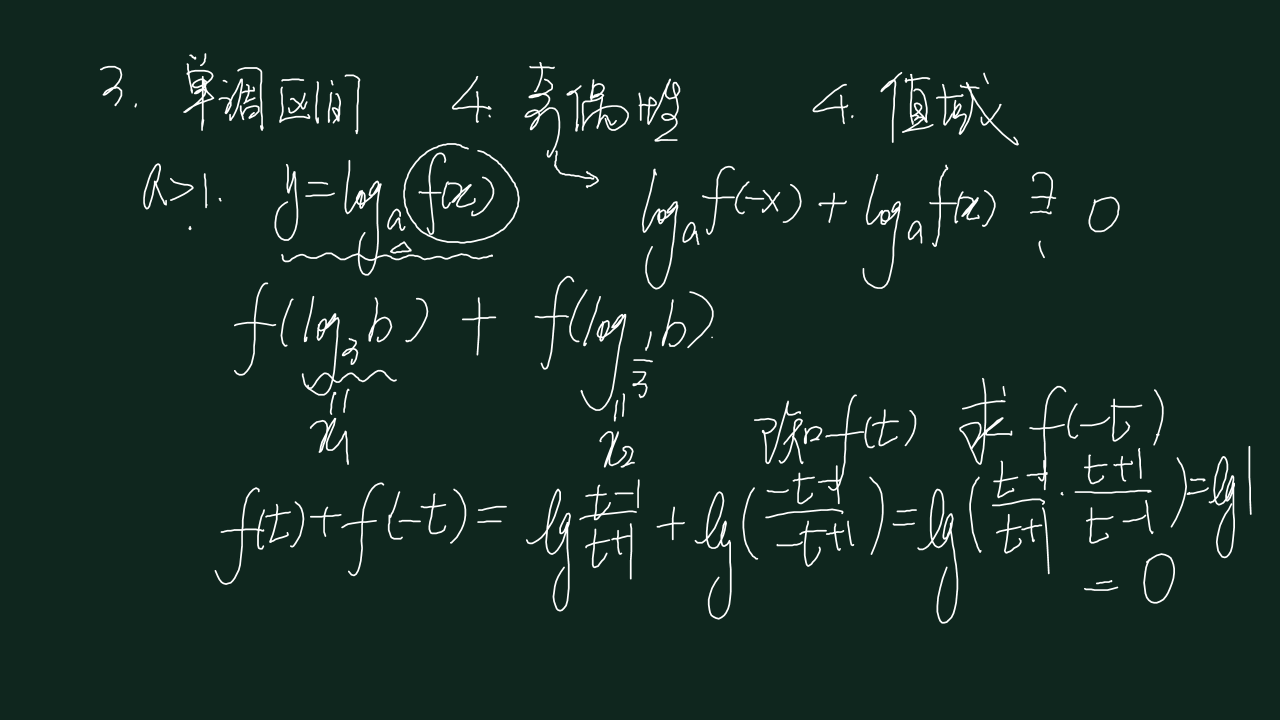 3. 单调区间 4. 奇偶性 4. 值域
a>1. y=logₐf(x) → logₐf(-x)+logₐf(x) ≟ 0
f(log₃b) + f(log_{1/3}b)
= x₁ = x₂
改知f(t) 求f(-t)
f(t)+f(-t)=lg\frac{t-1}{t+1}+lg(\frac{-t-1}{-t+1})=lg(\frac{t-1}{t+1}·\frac{t+1}{t-1})=lg1
=0